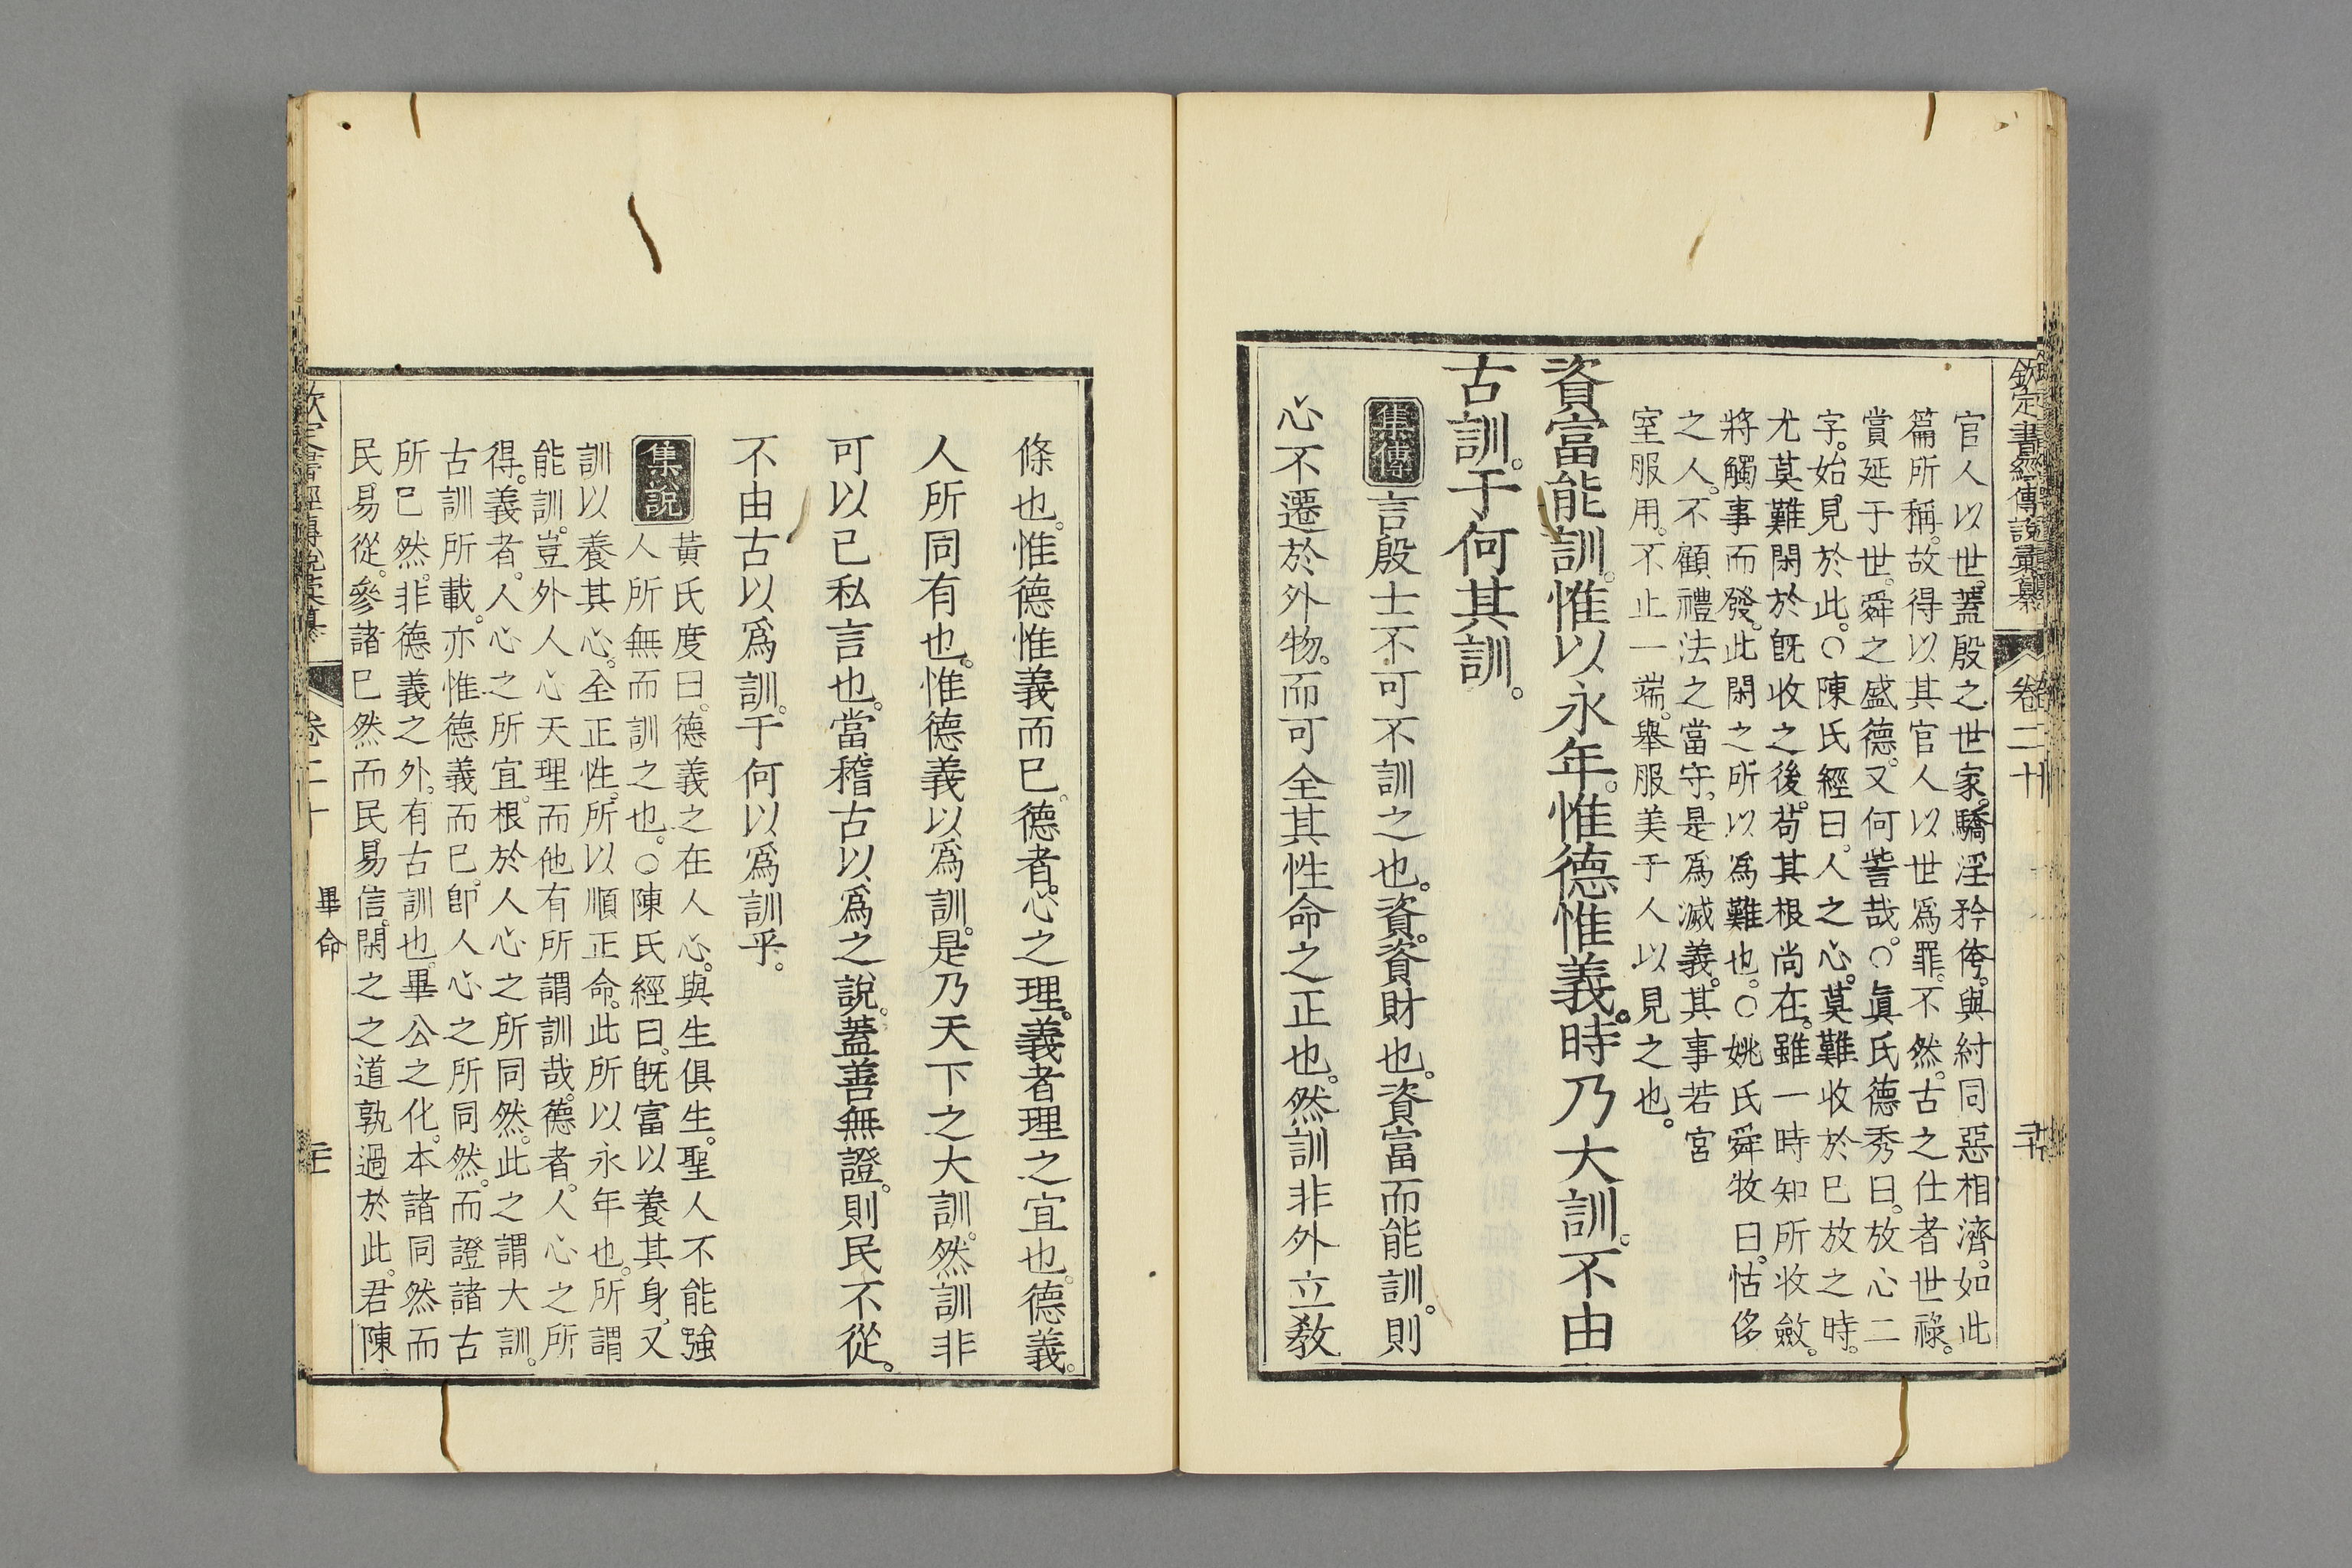 欽定書經傳說彙纂 卷二十
官人以世。蓋殷之世家。驕淫矜侉。與紂同惡相濟。如此
篇所稱。故得以其官人以世爲罪。不然。古之仕者世祿。
賞延于世。舜之盛德。又何訾哉。○眞氏德秀曰。放心二
字。始見於此。○陳氏經曰。人之心。莫難收於已放之時。
尤莫難閑於既收之後。苟其根尚在。雖一時知所收斂。
將觸事而發。此閑之所以爲難也。○姚氏舜牧曰。怙侈
之人。不顧禮法之當守。是爲滅義。其事若宮
室服用。不止一端。舉服美于人以見之也。
資富能訓。惟以永年。惟德惟義。時乃大訓。不由
古訓。于何其訓。
集傳 言殷士不可不訓之也。資。資財也。資富而能訓。則
心不遷於外物。而可全其性命之正也。然訓非外立教
條也。惟德惟義而已。德者。心之理。義者理之宜也。德義。
人所同有也。惟德義以爲訓。是乃天下之大訓。然訓非
可以已私言也。當稽古以爲之說。蓋善無證。則民不從。
不由古以爲訓。于何以爲訓乎。
集說 黃氏度曰。德義之在人心。與生俱生。聖人不能強
人所無而訓之也。○陳氏經曰。既富以養其身。又
訓以養其心。全正性。所以順正命。此所以永年也。所謂
能訓。豈外人心天理而他有所謂訓哉。德者。人心之所
得。義者。人心之所宜。根於人心之所同然。此之謂大訓。
古訓所載。亦惟德義而已。卽人心之所同然。而證諸古
所已然。非德義之外。有古訓也。畢公之化。本諸同然而
民易從。參諸已然而民易信。閑之之道孰過於此。君陳
欽定書經傳說彙纂 卷二十 畢命